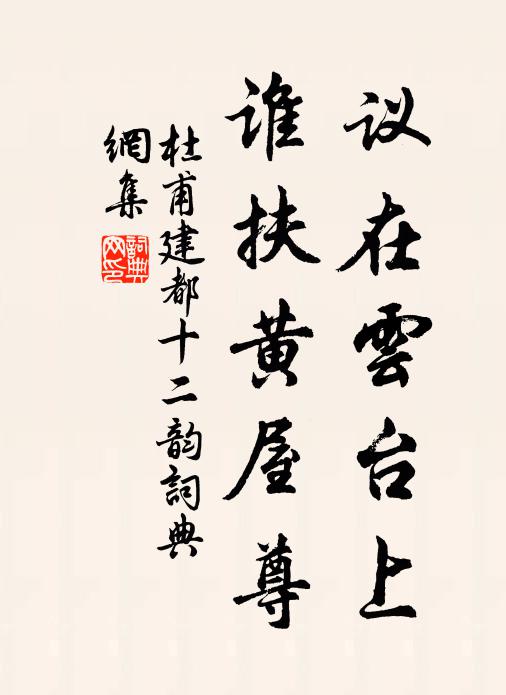 议在雲台上
谁扶黄屋尊
杜甫建都十二韵詞典
網集
詞典网印